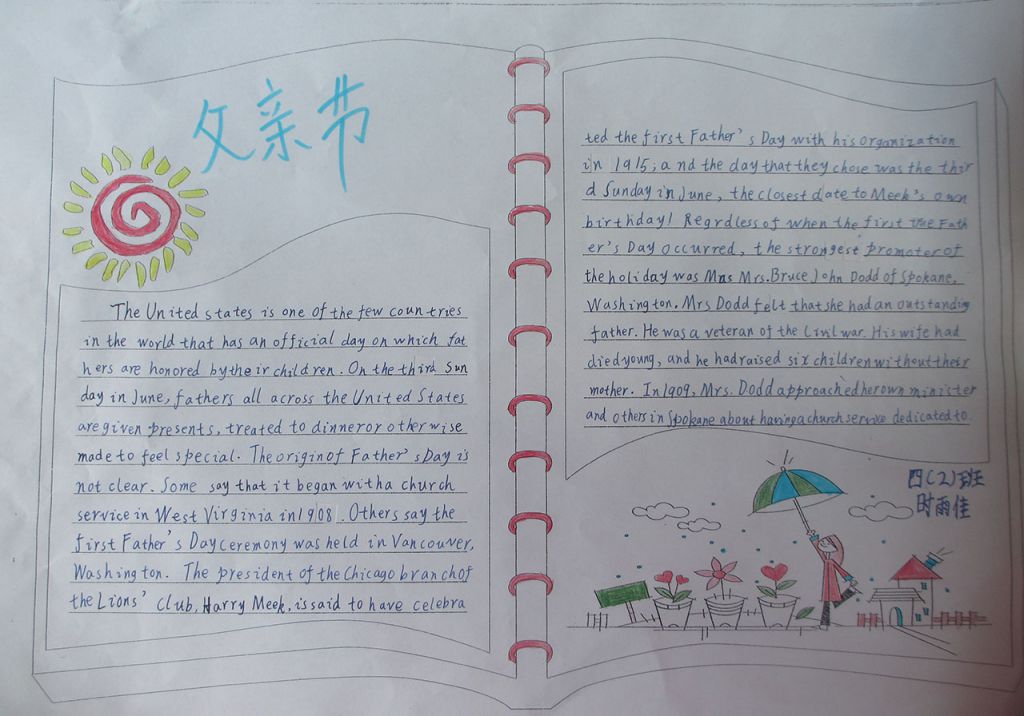 父亲节
The United states is one of the few countries
in the world that has an official day on which fat
hers are honored by their children. On the third Sun
day in June, fathers all across the United States
are given presents, treated to dinner or otherwise
made to feel special. The origin of Father's Day is
not clear. Some say that it began with a church
service in West Virginia in 1908. Others say the
first Father's Day ceremony was held in Vancouver,
Washington. The president of the Chicago branch of
the Lions' Club, Harry Meek, is said to have celebra
ted the first Father's Day with his organization
in 1915; and the day that they chose was the thir
d Sunday in June, the closest date to Meek's own
birthday! Regrdless of when the first Fath
er's Day occurred, the strongest promoter of
the holiday was Mrs. Bruce John Dodd of Spokane,
Washington. Mrs Dodd felt that she had an outstanding
father. He was a veteran of the war. His wife had
died young, and he had raised six children without their
mother. In 1909, Mrs. Dodd approached her own minister
and others in Spokane about having a church service dedicated to
四(2)班
时雨佳